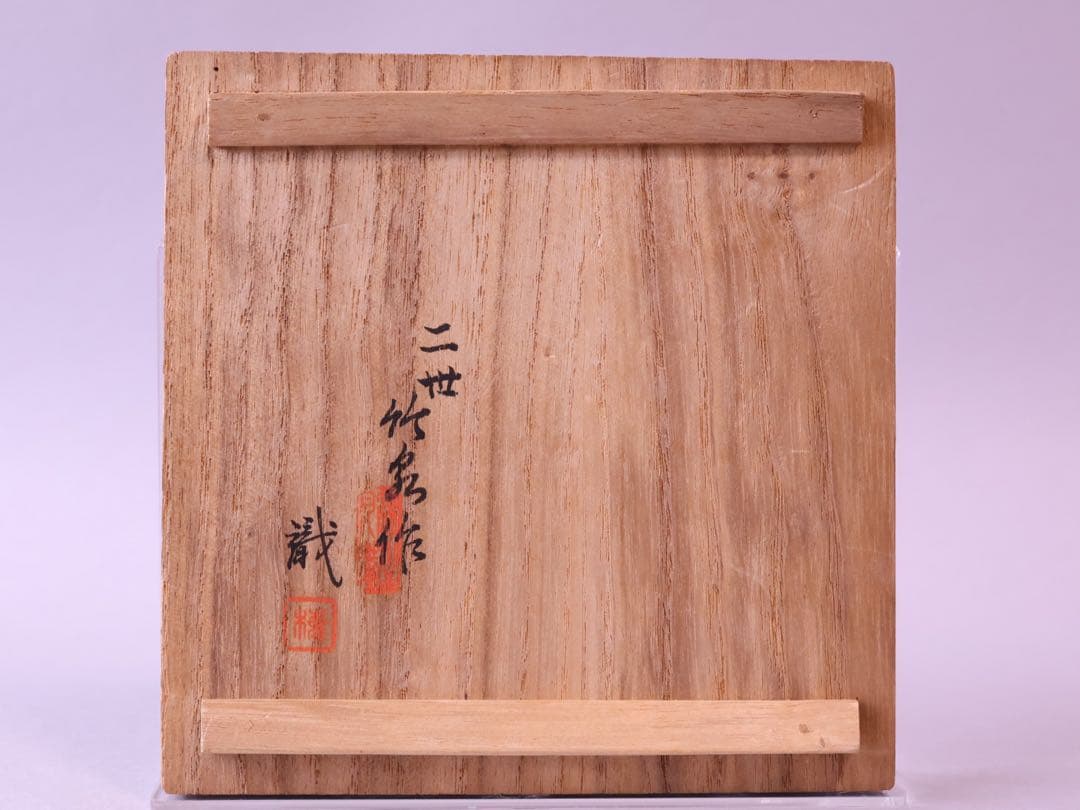 二世
竹泉作
識